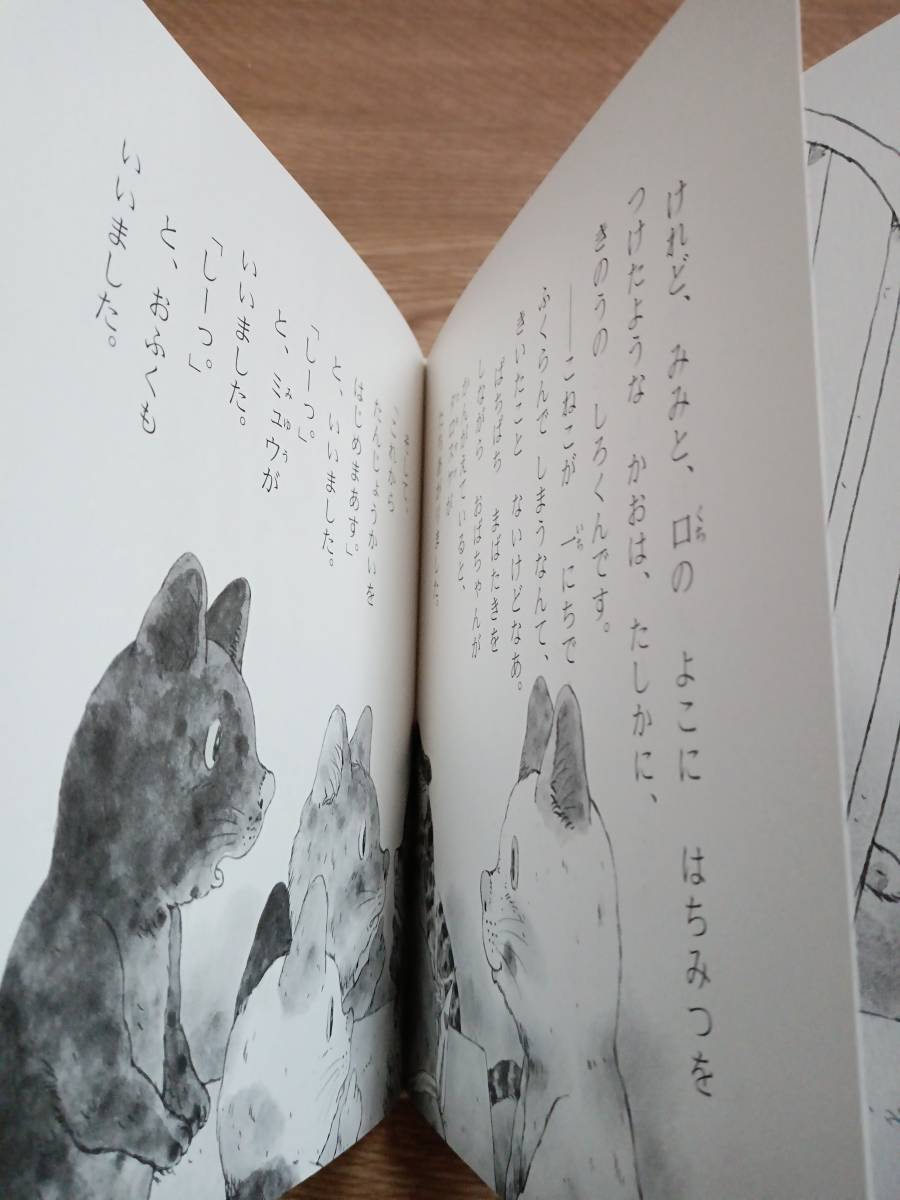 けれど、みみと、口の よこに はちみつを
つけたような かおは、たしかに、
きのうの しろくんです。
――こねこが 一にちで
ふくらんで しまうなんて、
きいたこと ないけどなあ。
ぱちぱち まばたきを
しながら おばちゃんが
かんがえていると、
そして、
「これから
たんじょうかいを
はじめまあす。」
と、いいました。
「しーっ。」
と、ミュウが
いいました。
「しーっ。」
と、おふくも
いいました。